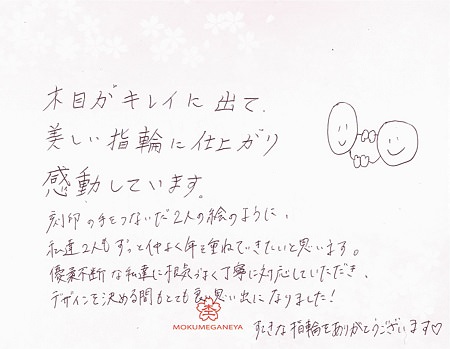 木目がキレイに出て、
美しい指輪に仕上がり
感動しています。
刻印の手をつないだ2人の絵のように、
私達2人もずっと仲よく年を重ねできたいと思います。
優柔不断な私達に根気よく丁寧に対応していただき、
デザインを決める間もとても良い思い出になりました!
MOKUMEGANEYA
すてきな指輪をありがとうございます♡